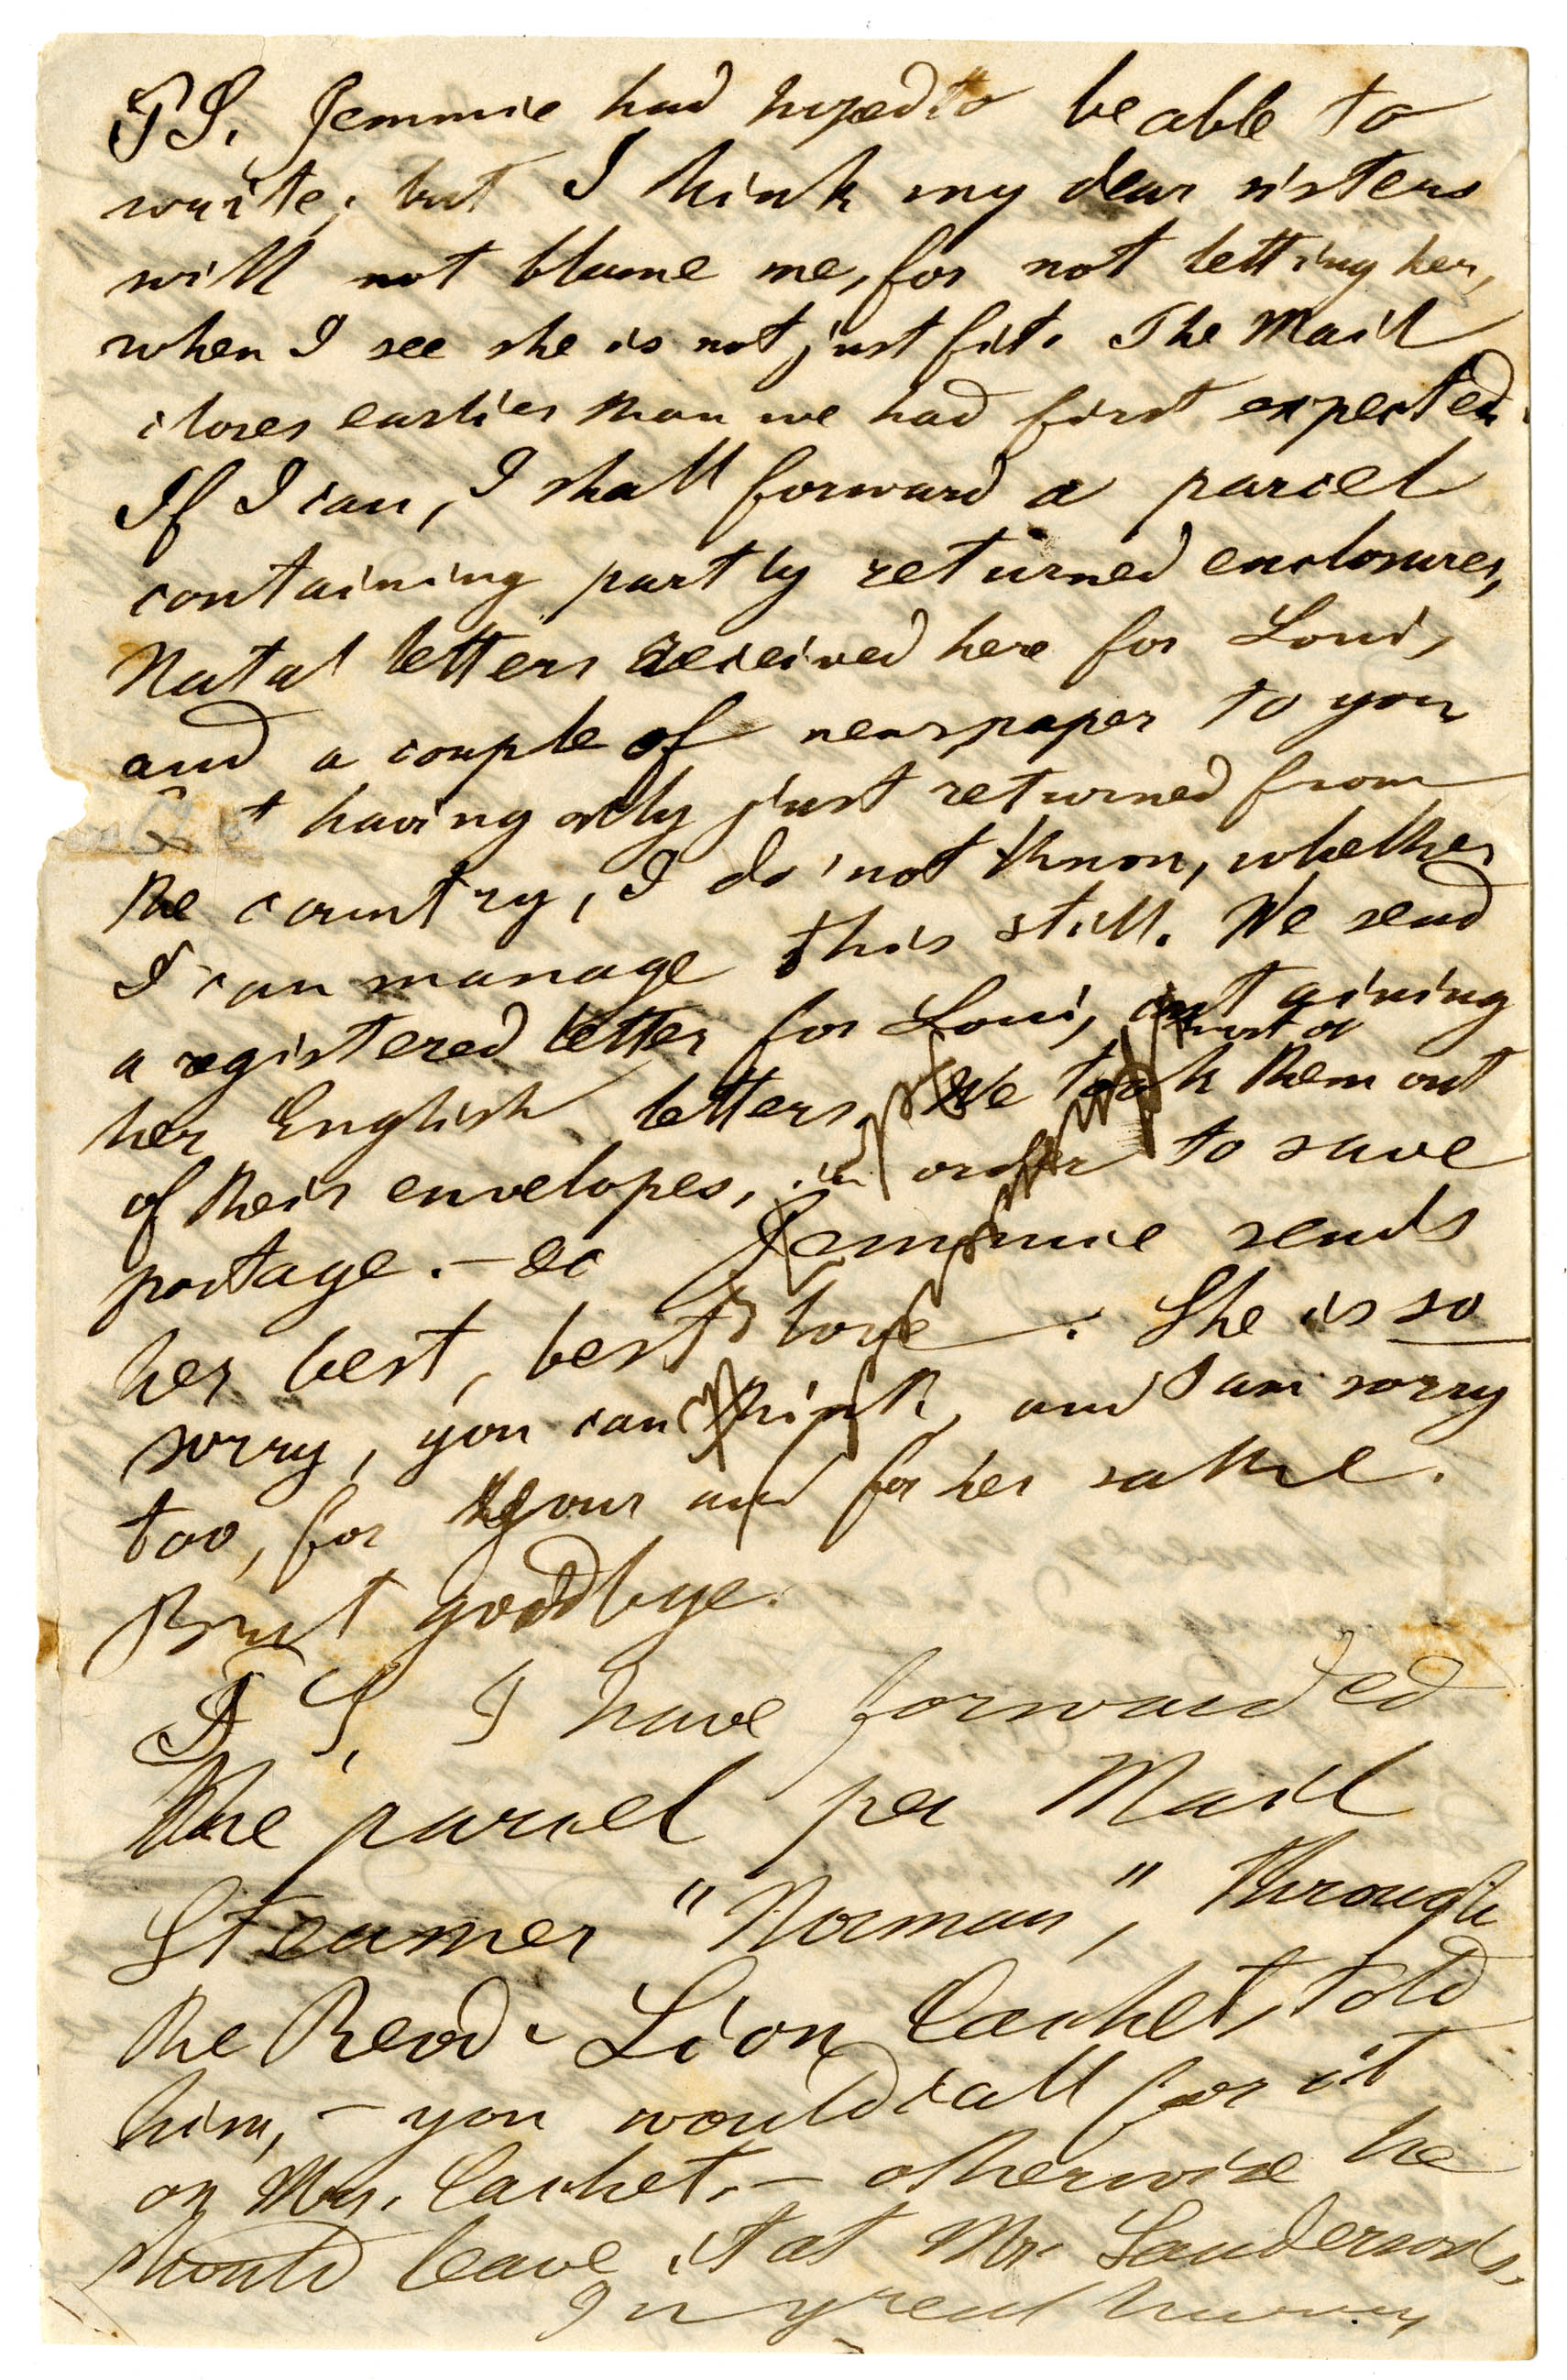 PS. Jemmie had hoped to be able to
write; but I think my dear sisters
will not blame me, for not letting her,
when I see she is not just fit. The Mail
closes earlier than we had first expected.
If I can, I shall forward a parcel
containing partly returned enclosures,
Natal letters received here for Loui,
and a couple of newspaper to you
having only just returned from
the country, I do not know, whether
I can manage this still. We send
a registered letter for Loui, containing
most of
her English letters. We took them out
of their envelopes, in order to save
postage. — &c Jemmie sends
her best, best love —. She is so
sorry, you can think, and I am sorry
too, for your and for her sake.
But goodbye.
P S, I have forwarded
the parcel per Mail
Steamer "Norman", through
the Revd. Lion Cachet, told
him, — you would call for it
on Mrs. Cachet, — otherwise he
should leave it at Mr. Sanderson's,
In great hurry